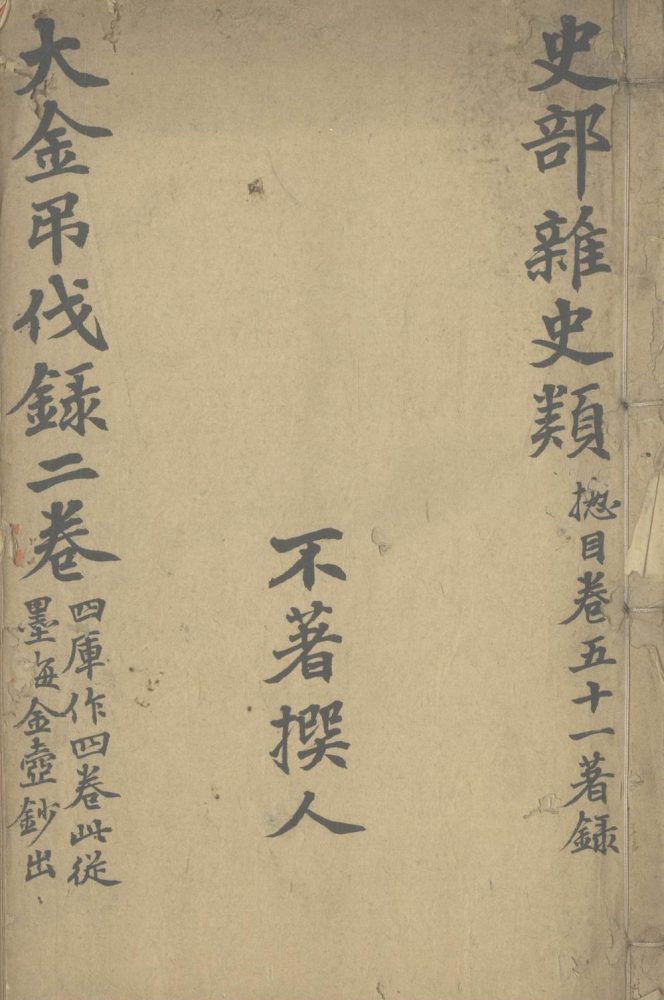 史部雜史類
摠目卷五十一著錄
不著撰人
大金弔伐録二卷
四庫作四卷此從
墨海金壺鈔出